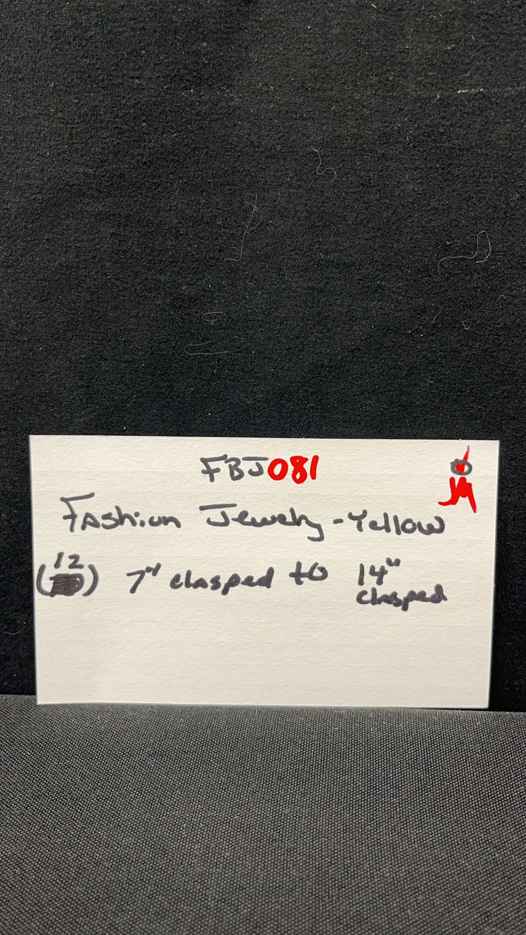 FBJ081
JM
Fashion Jewelry - Yellow
(12) 7" clasped to 14" clasped